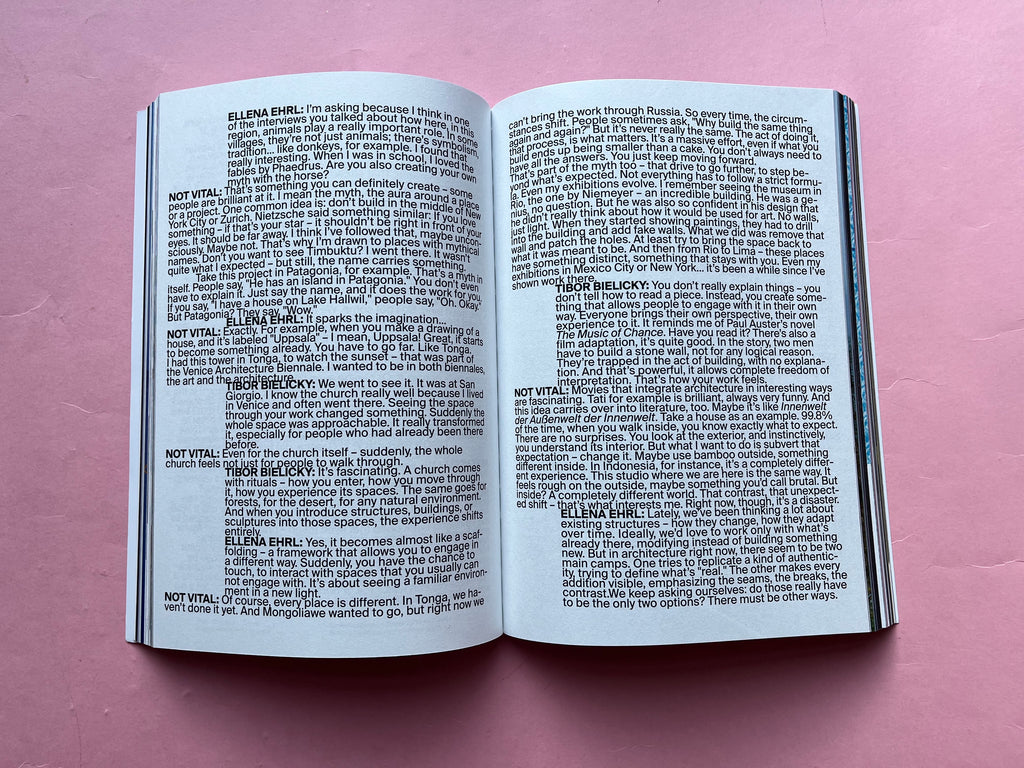 ELLENA EHRL: I'm asking because I think in one
of the interviews you talked about how here, in this
region, animals play a really important role. In some
villages, they're not just animals; there's symbolism,
tradition... like donkeys, for example. I found that
really interesting. When I was in school, I loved the
fables by Phaedrus. Are you also creating your own
myth with the horse?
NOT VITAL: That's something you can definitely create – some
people are brilliant at it. I mean the myth, the aura around a place
or a project. One common idea is: don't build in the middle of New
York City or Zurich. Nietzsche said something similar: If you love
something – if that's your star – it shouldn't be right in front of your
eyes. It should be far away. I think I've followed that, maybe uncon-
sciously. Maybe not. That's why I'm drawn to places with mythical
names. Don't you want to see Timbuktu? I went there. It wasn't
quite what I expected – but still, the name carries something.
Take this project in Patagonia, for example. That's a myth in
itself. People say, "He has an island in Patagonia." You don't even
have to explain it. Just say the name, and it does the work for you.
If you say, "I have a house on Lake Hallwil," people say, "Oh. Okay."
But Patagonia? They say, "Wow."
ELLENA EHRL: It sparks the imagination...
NOT VITAL: Exactly. For example, when you make a drawing of a
house, and it's labeled "Uppsala" – I mean, Uppsala! Great, it starts
to become something already. You have to go far. Like Tonga.
I had this tower in Tonga, to watch the sunset – that was part of
the Venice Architecture Biennale. I wanted to be in both biennales,
the art and the architecture.
TIBOR BIELICKY: We went to see it. It was at San
Giorgio. I know the church really well because I lived
in Venice and often went there. Seeing the space
through your work changed something. Suddenly the
whole space was approachable. It really transformed
it, especially for people who had already been there
before.
NOT VITAL: Even for the church itself – suddenly, the whole
church feels not just for people to walk through.
TIBOR BIELICKY: It's fascinating. A church comes
with rituals – how you enter, how you move through
it, how you experience its spaces. The same goes for
forests, for the desert, for any natural environment.
And when you introduce structures, buildings, or
sculptures into those spaces, the experience shifts
entirely.
ELLENA EHRL: Yes, it becomes almost like a scaf-
folding – a framework that allows you to engage in
a different way. Suddenly, you have the chance to
touch, to interact with spaces that you usually can
not engage with. It's about seeing a familiar environ-
ment in a new light.
NOT VITAL: Of course, every place is different. In Tonga, we ha-
ven't done it yet. And Mongoliawe wanted to go, but right now we
can't bring the work through Russia. So every time, the circum-
stances shift. People sometimes ask, "Why build the same thing
again and again?" But it's never really the same. The act of doing it,
that process, is what matters. It's a massive effort, even if what you
build ends up being smaller than a cake. You don't always need to
have all the answers. You just keep moving forward.
That's part of the myth too – that drive to go further, to step be-
yond what's expected. Not everything has to follow a strict formu-
la. Even my exhibitions evolve. I remember seeing the museum in
Rio, the one by Niemeyer – an incredible building. He was a ge-
nius, no question. But he was also so confident in his design that
he didn't really think about how it would be used for art. No walls,
just light. When they started showing paintings, they had to drill
into the building and add fake walls. What we did was remove that
wall and patch the holes. At least try to bring the space back to
what it was meant to be. And then from Rio to Lima – these places
have something distinct, something that stays with you. Even my
exhibitions in Mexico City or New York... it's been a while since I've
shown work there.
TIBOR BIELICKY: You don't really explain things – you
don't tell how to read a piece. Instead, you create some-
thing that allows people to engage with it in their own
way. Everyone brings their own perspective, their own
experience to it. It reminds me of Paul Auster's novel
The Music of Chance. Have you read it? There's also a
film adaptation, it's quite good. In the story, two men
have to build a stone wall, not for any logical reason.
They're trapped in the act of building, with no explana-
tion. And that's powerful, it allows complete freedom of
interpretation. That's how your work feels.
NOT VITAL: Movies that integrate architecture in interesting ways
are fascinating. Tati for example is brilliant, always very funny. And
this idea carries over into literature, too. Maybe it's like Innenwelt
der Außenwelt der Innenwelt. Take a house as an example. 99.8%
of the time, when you walk inside, you know exactly what to expect.
There are no surprises. You look at the exterior, and instinctively,
you understand its interior. But what I want to do is subvert that
expectation – change it. Maybe use bamboo outside, something
different inside. In Indonesia, for instance, it's a completely differ-
ent experience. This studio where we are here is the same way. It
feels rough on the outside, maybe something you'd call brutal. But
inside? A completely different world. That contrast, that unexpect-
ed shift – that's what interests me. Right now, though, it's a disaster.
ELLENA EHRL: Lately, we've been thinking a lot about
existing structures – how they change, how they adapt
over time. Ideally, we'd love to work only with what's
already there, modifying instead of building something
new. But in architecture right now, there seem to be two
main camps. One tries to replicate a kind of authentic-
ity, trying to define what's "real." The other makes every
addition visible, emphasizing the seams, the breaks, the
contrast.We keep asking ourselves: do those really have
to be the only two options? There must be other ways.